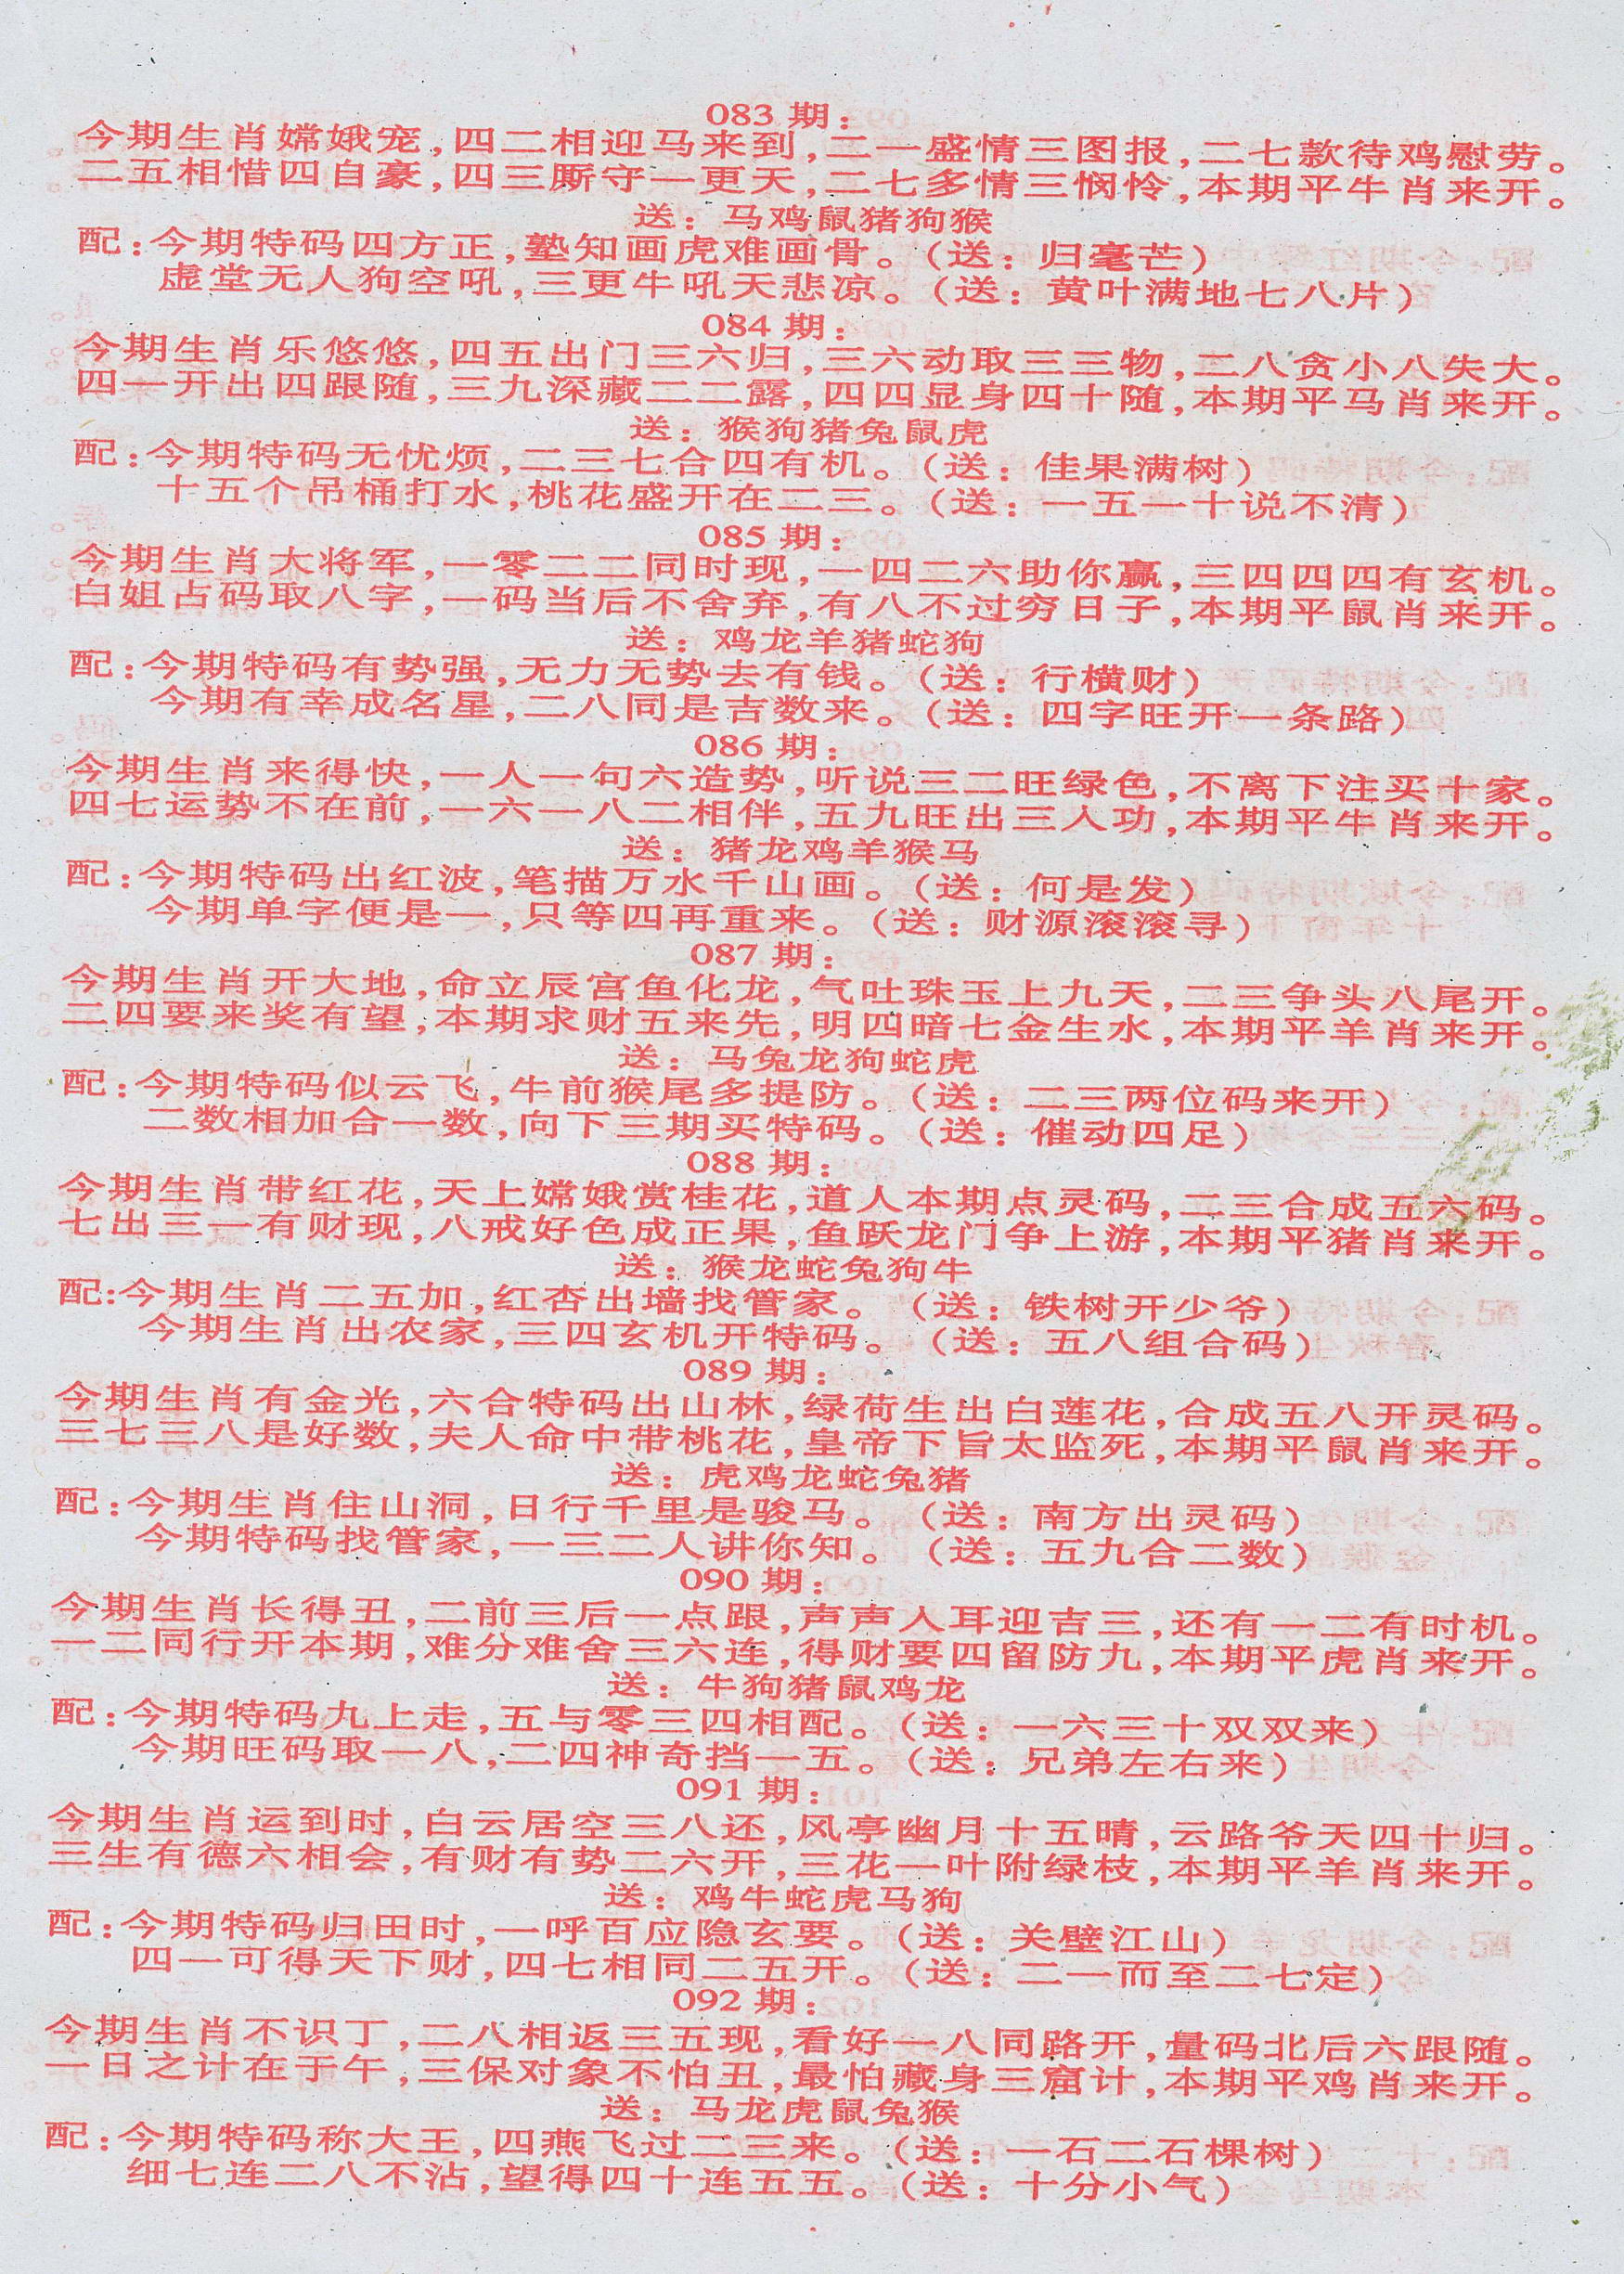 083期：
今期生肖嫦娥宠，四二相迎马来到，二一盛情三图报，二七款待鸡慰劳。
二五相惜四自豪，四三厮守一更天，二七多情三悯怜，本期平牛肖来开。
送：马鸡鼠猪狗猴
配：今期特码四方正，塾知画虎难画骨。（送：归毫芒）
虚堂无人狗空吼，三更牛吼天悲凉。（送：黄叶满地七八片）
084期：
今期生肖乐悠悠，四五出门三六归，三六动取三三物，二八贪小八失大。
四一开出四跟随，三九深藏二二露，四四显身四十随，本期平马肖来开。
送：猴狗猪兔鼠虎
配：今期特码无忧烦，二三七合四有机。（送：佳果满树）
十五个吊桶打水，桃花盛开在二三。（送：一五一十说不清）
085期：
今期生肖大将军，一零二二同时现，一四二六助你赢，三四四四有玄机。
白姐占码取八字，一码当后不舍弃，有八不过穷日子，本期平鼠肖来开。
送：鸡龙羊猪蛇狗
配：今期特码有势强，无力无势去有钱。（送：行横财）
今期有幸成名星，二八同是吉数来。（送：四字旺开一条路）
086期：
今期生肖来得快，一人一句六造势，听说三二旺绿色，不离下注买十家。
四七运势不在前，一六一八二相伴，五九旺出三人功，本期平牛肖来开。
送：猪龙鸡羊猴马
配：今期特码出红波，笔描万水千山画。（送：何是发）
今期单字便是一，只等四再重来。（送：财源滚滚寻）
087期：
今期生肖开大地，命立辰宫鱼化龙，气吐珠玉上九天，二三争头八尾开。
二四要来奖有望，本期求财五来先，明四暗七金生水，本期平羊肖来开。
送：马兔龙狗蛇虎
配：今期特码似云飞，牛前猴尾多提防。（送：二三两位码来开）
二数相加合一数，向下三期买特码。（送：催动四足）
088期：
今期生肖带红花，天上嫦娥赏桂花，道人本期点灵码，二三合成五六码。
七出三一有财现，八戒好色成正果，鱼跃龙门争上游，本期平猪肖来开。
送：猴龙蛇兔狗牛
配：今期生肖二五加，红杏出墙找管家。（送：铁树开少爷）
今期生肖出农家，三四玄机开特码。（送：五八组合码）
089期：
今期生肖有金光，六合特码出山林，绿荷生出白莲花，合成五八开灵码。
三七三八是好数，夫人命中带桃花，皇帝下旨太监死，本期平鼠肖来开。
送：虎鸡龙蛇兔猪
配：今期生肖住山洞，日行千里是骏马。（送：南方出灵码）
今期特码找管家，一三二人讲你知。（送：五九合二数）
090期：
今期生肖长得丑，二前三后一点跟，声声入耳迎吉三，还有一二有时机。
一二同行开本期，难分难舍三六连，得财要四留防九，本期平虎肖来开。
送：牛狗猪鼠鸡龙
配：今期特码九上走，五与零三四相配。（送：一六三十双双来）
今期旺码取一八，二四神奇挡一五。（送：兄弟左右来）
091期：
今期生肖运到时，白云居空三八还，风亭幽月十五晴，云路爷天四十归。
三生有德六相会，有财有势二六开，三花一叶附绿枝，本期平羊肖来开。
送：鸡牛蛇虎马狗
配：今期特码归田时，一呼百应隐玄要。（送：关壁江山）
四一可得天下财，四七相同二五开。（送：二一而至二七定）
092期：
今期生肖不识丁，二八相返三五现，看好一八同路开，量码北后六跟随。
一日之计在于午，三保对象不怕丑，最怕藏身三窟计，本期平鸡肖来开。
送：马龙虎鼠兔猴
配：今期特码称大王，四燕飞过二三来。（送：一石二石棵树）
细七连二八不沾，望得四十连五五。（送：十分小气）